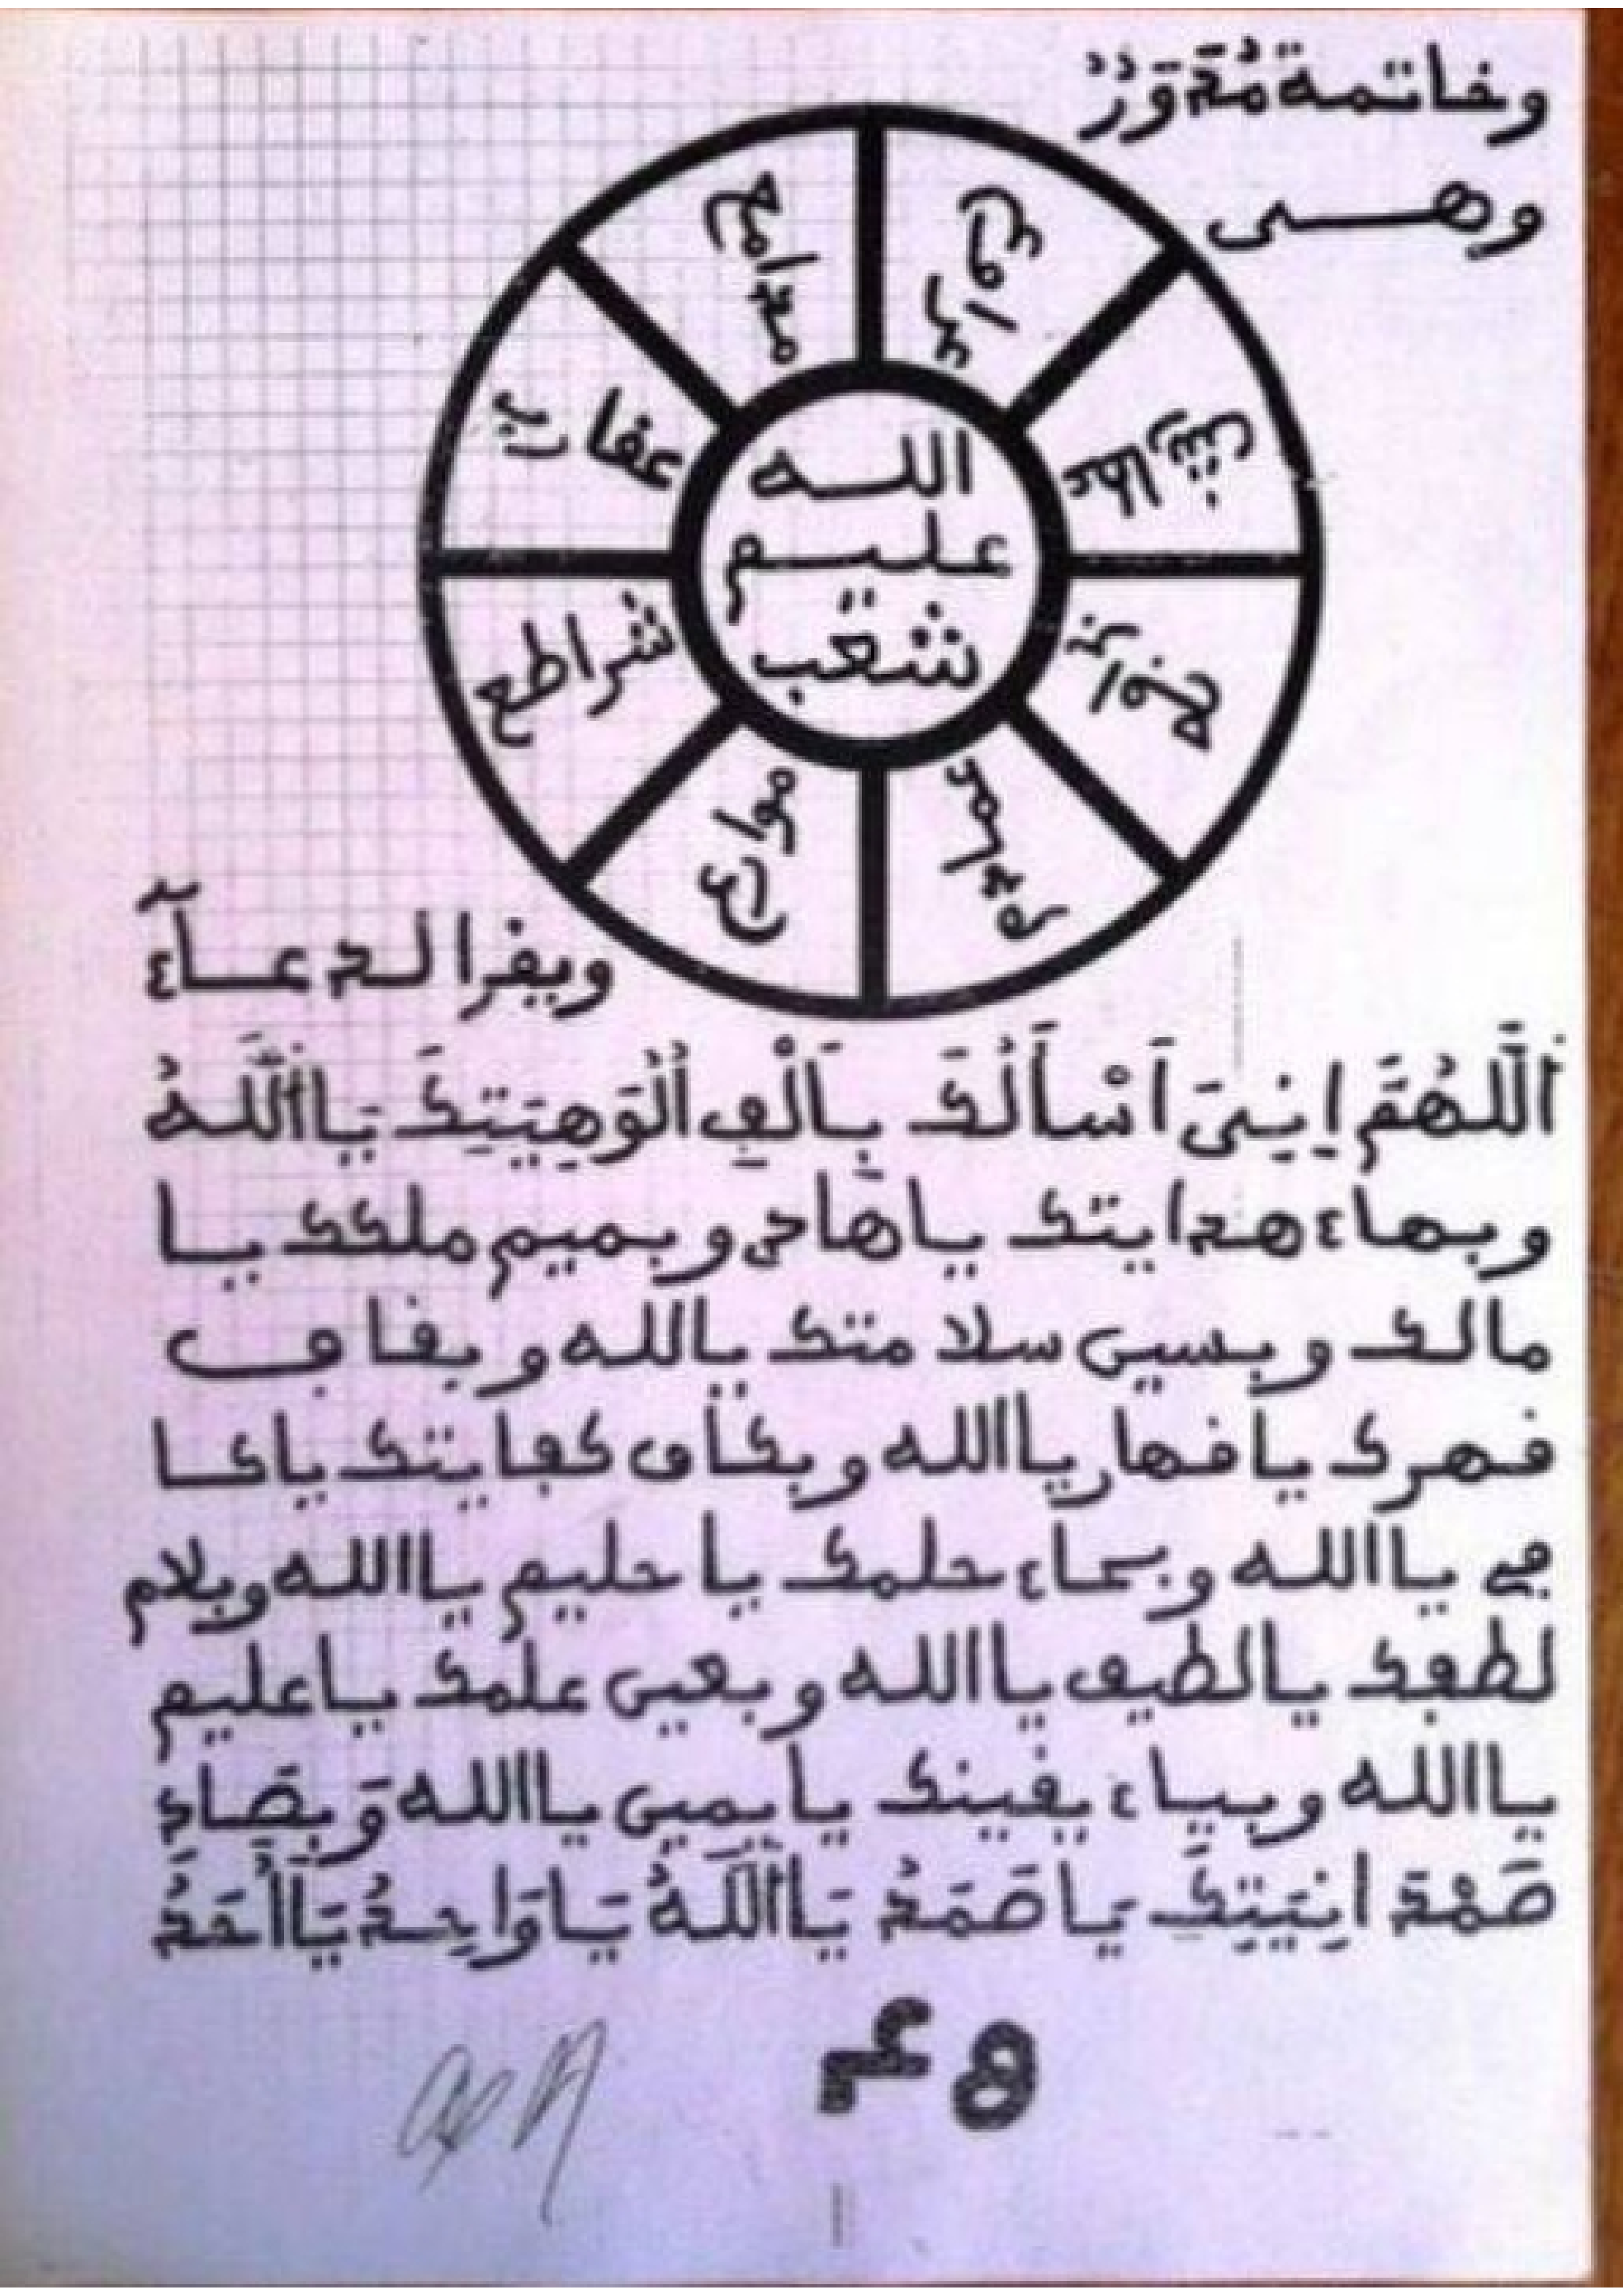 وخاتمة مُدَوَّرْ
وهـــى
معدامح
عفاريد
شراطع
الله
عليم
شعب
ويفرا الدعآء
اَللَّهُمَّ اِنِىَ اَسْأَلُكَ بِأَلْفِ اُلُوَهِيَتِكَ يَااَللَّهُ
وبهاء هدايتك ياهادى وبميم ملكك يا
مالك وبسين سلامتك يالله وبفاف
فهرك يافهار ياالله وبكاف كفايتك ياكا
فى ياالله وبحاء حلمك ياحليم ياالله وبلام
لطفك يالطيف ياالله وبعين علمك ياعليم
ياالله وبياء يفينك يايمين ياالله وَبِصَادِ
صَمْدَانِيَتِكَ يَاصَمَدُ يَااَللَّهُ يَاوَاحِدُ يَااَحَدُ